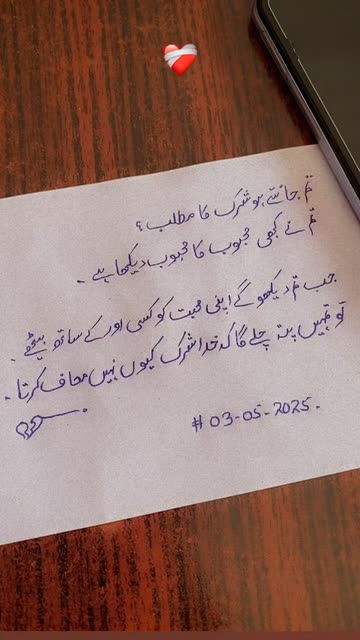 تم جانتے ہو شرک کا مطلب ؟
تم نے کبھی محبوب کا محبوب دیکھا ہے ۔
جب تم دیکھو گے اپنی محبت کو کسی اور کے ساتھ بیٹھے ۔
تو تمہیں پتہ چلے گا کہ خدا شرک کیوں نہیں معاف کرتا ۔
# 03-05-2025.